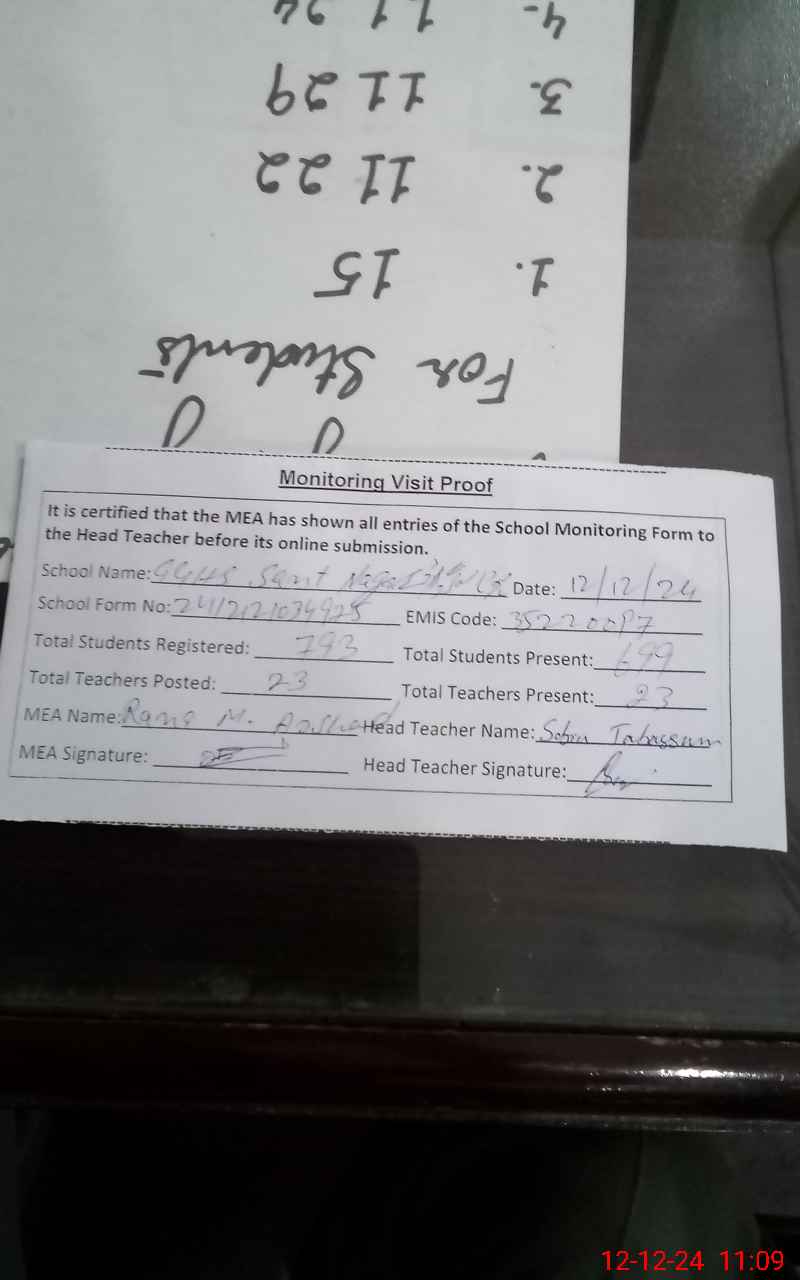 For Students
1. 15
2. 11 22
3. 11 29
4. 11 24
Monitoring Visit Proof
It is certified that the MEA has shown all entries of the School Monitoring Form to
the Head Teacher before its online submission.
School Name: GGHS Sant Nagar Date: 12/12/24
School Form No: EMIS Code:
Total Students Registered: 793 Total Students Present: 699
Total Teachers Posted: 23 Total Teachers Present: 23
MEA Name: Rana M. Arshad Head Teacher Name: Tabassum
MEA Signature: Head Teacher Signature:
12-12-24 11:09